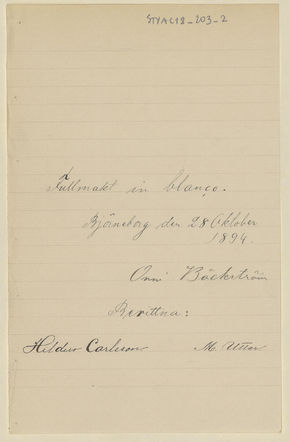 Fullmakt in blanco.
Björneborg den 28 Oktober
1894.
Onni Bäckström
Bevittna:
Hildur Carlsson M.